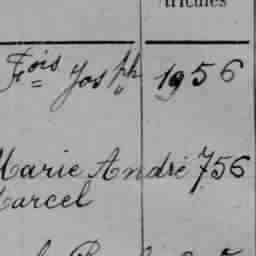 tricules
Fois Josph 1956
Marie André 756
Marcel